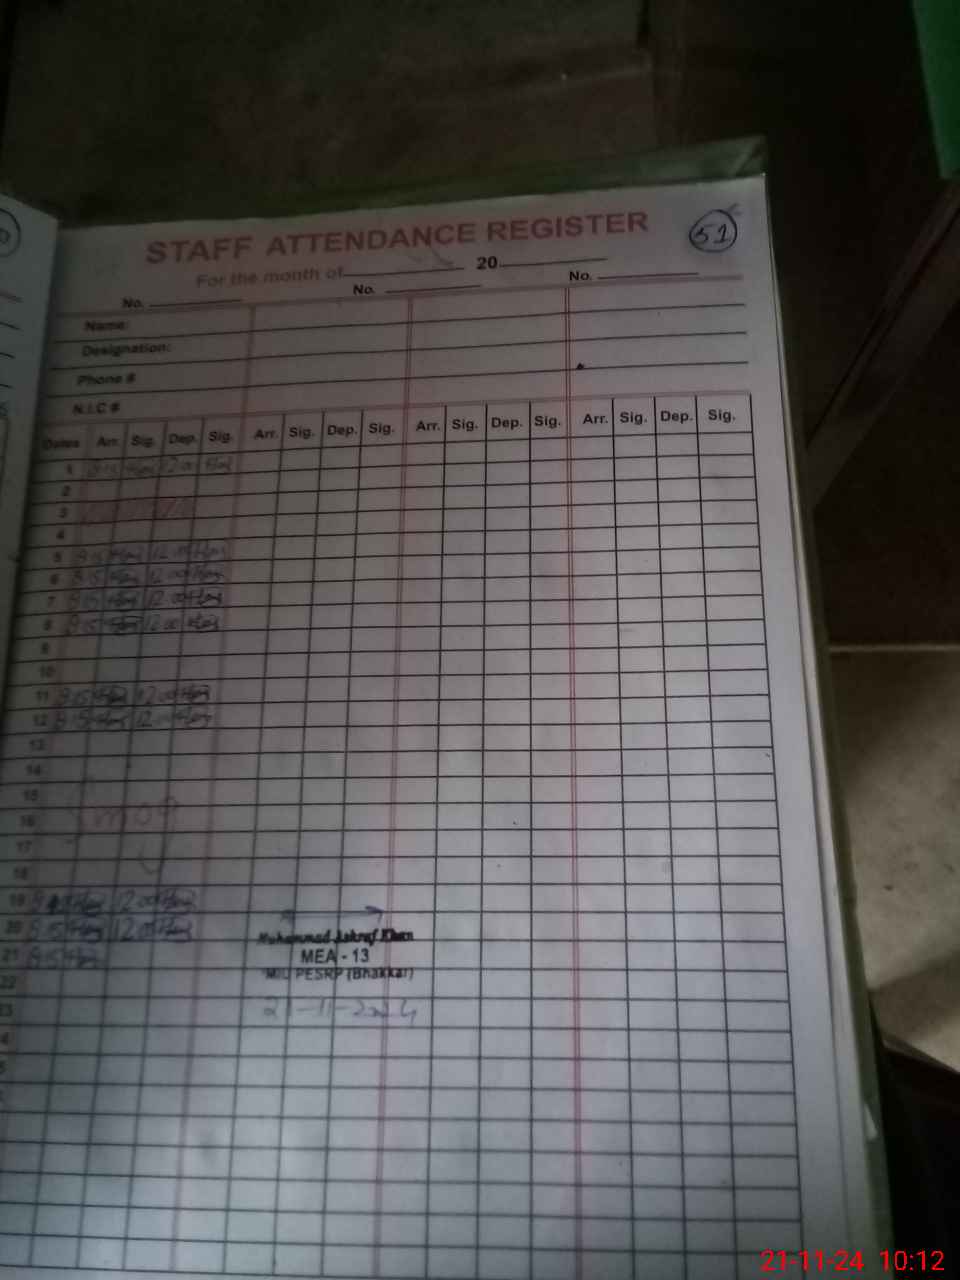 STAFF ATTENDANCE REGISTER
51
For the month of 20
No. No. No.
Name:
Designation:
Phone #
N.I.C #
Dates Arr. Sig. Dep. Sig. Arr. Sig. Dep. Sig. Arr. Sig. Dep. Sig. Arr. Sig. Dep. Sig.
1 8:15 12:00
2
3
4
5 8:15 12:00
6 8:15 12:00
7 8:15 12:00
8 8:15 12:00
9
10
11 8:15 12:00
12 8:15 12:00
13
14
15
16
17
18
19 12:00
20 8:15 12:00
21 8:15
22
23
Muhammad Ashraf Khan
MEA - 13
PESRP (Bhakkar)
21-11-2024
21-11-24 10:12